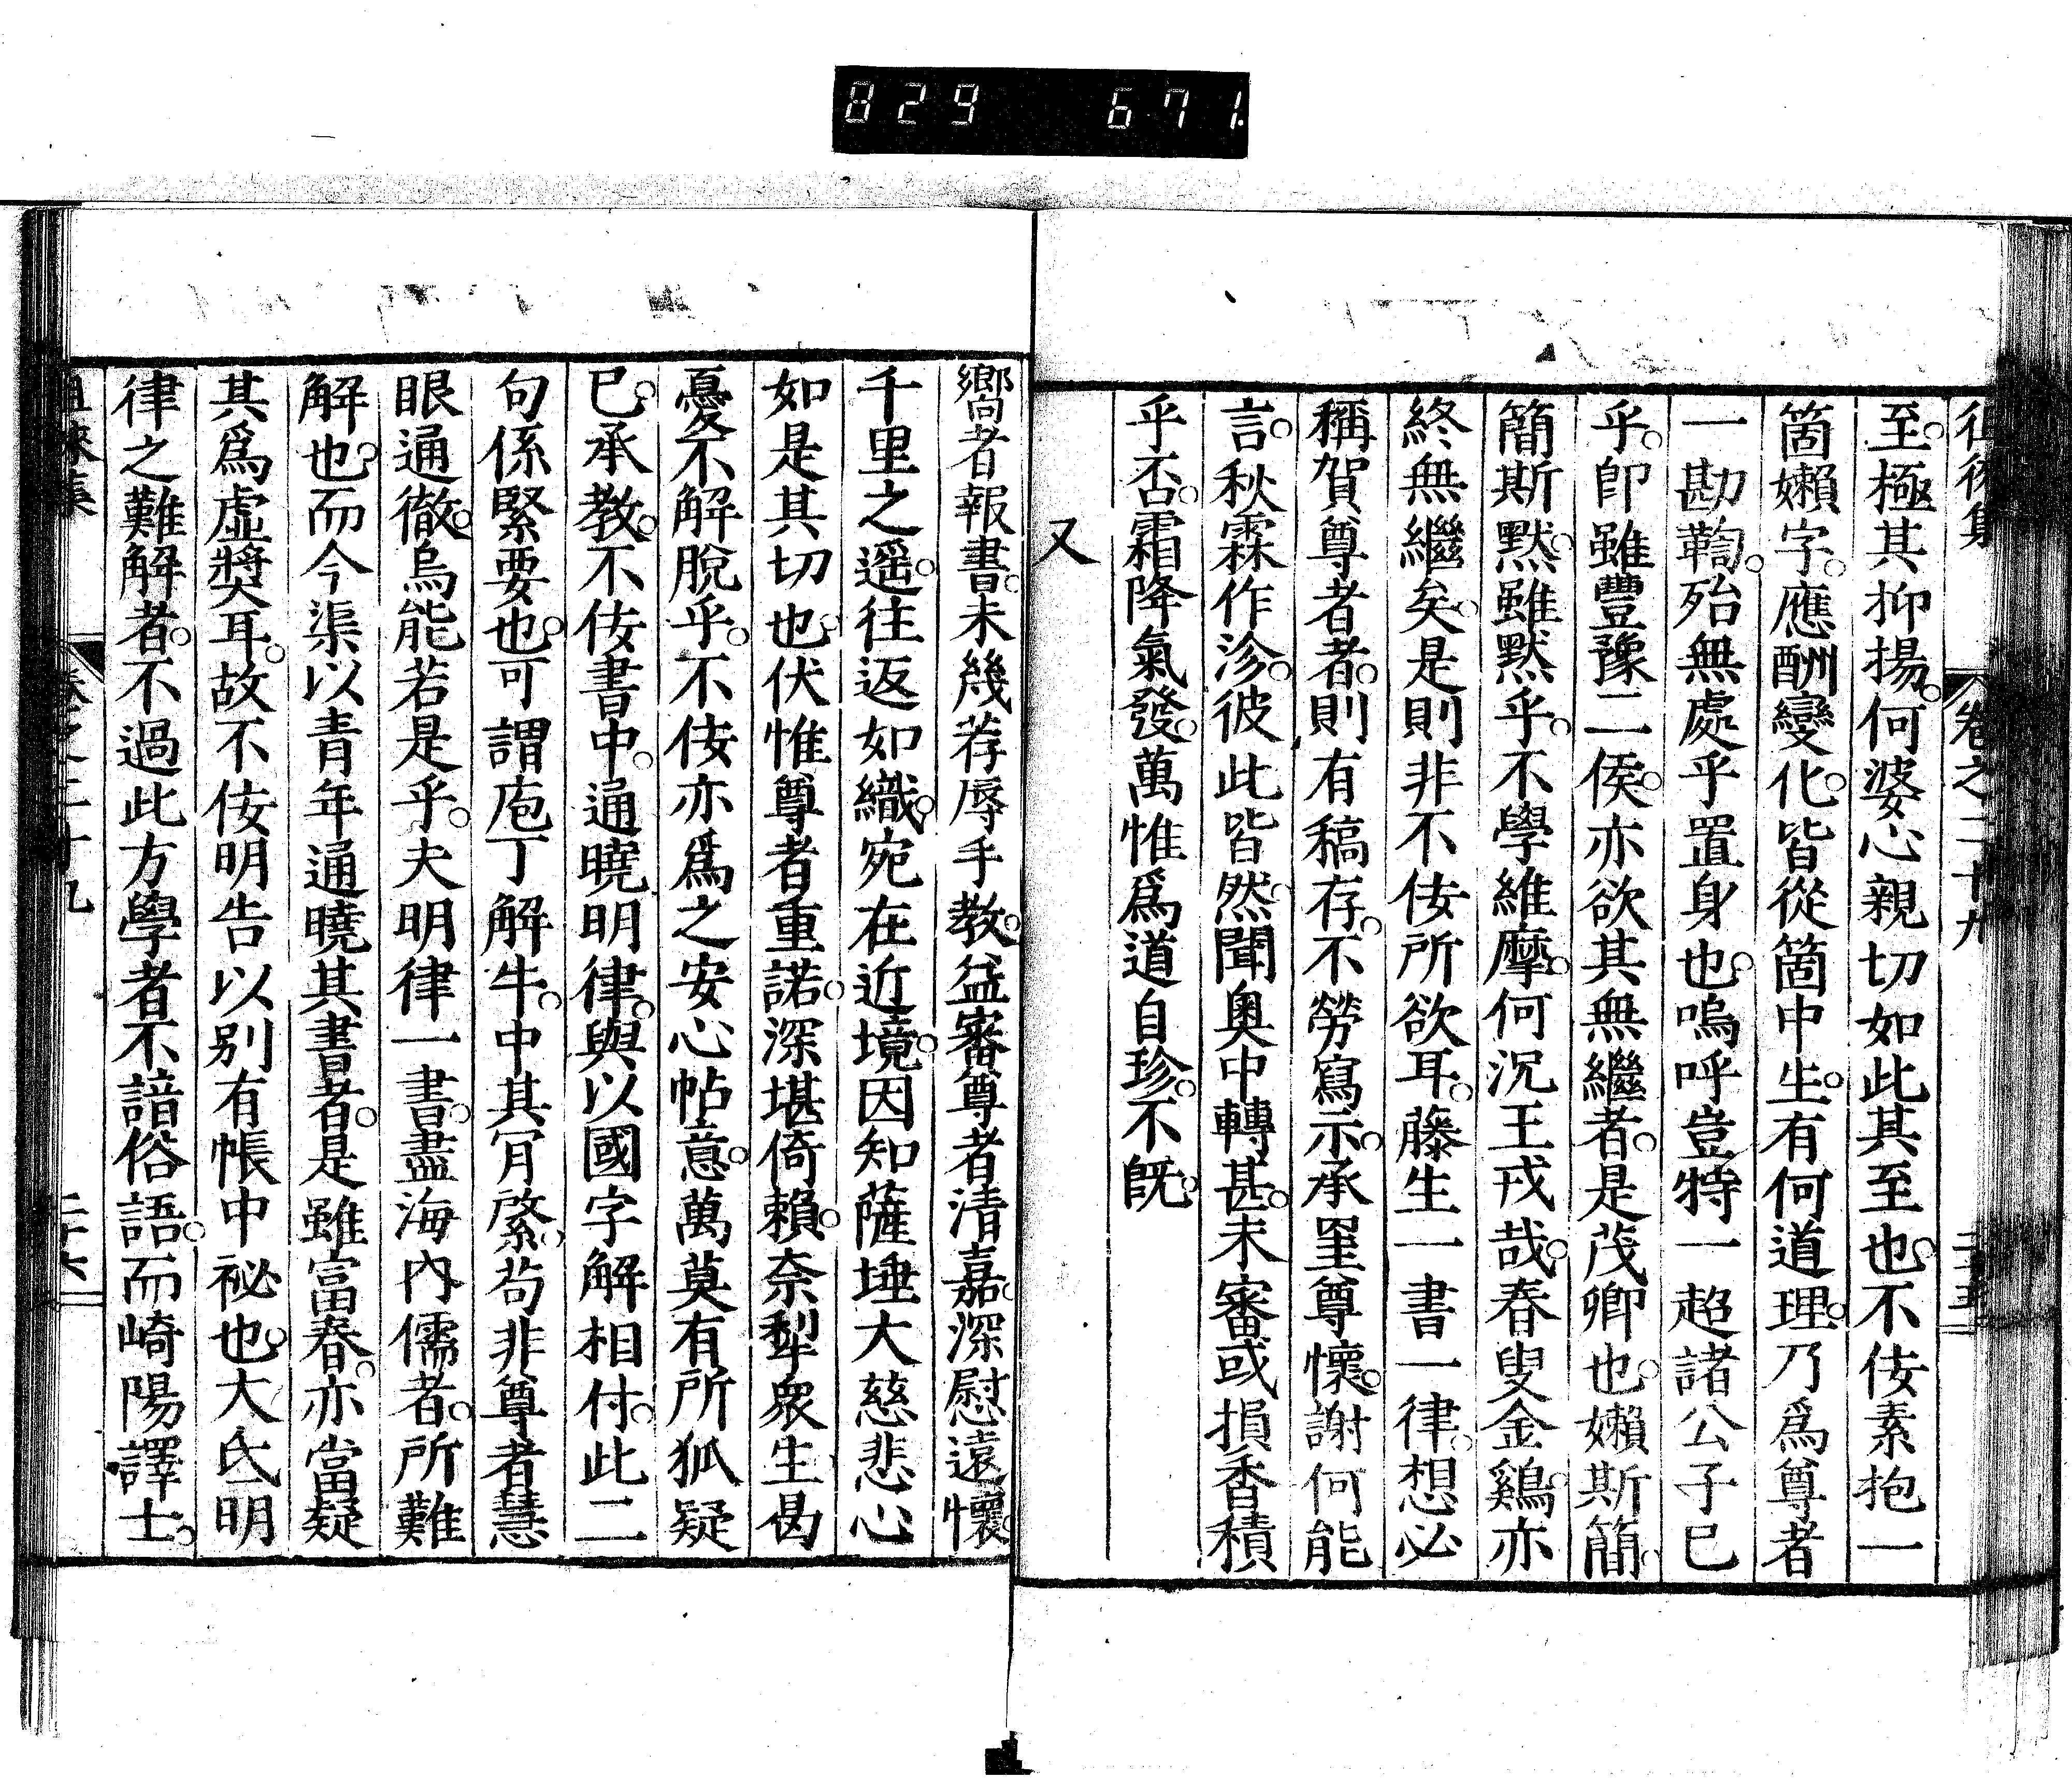 829 671
徂徠集 卷之二十九 二十五
至。極其抑揚。何婆心親切如此其至也。不佞素抱一
箇嬾字。應酬變化。皆從箇中生。有何道理。乃爲尊者
一勘鞫。殆無處乎置身也。嗚呼豈特一超諸公子已
乎。卽雖豐豫二侯。亦欲其無繼者。是茂卿也。嬾斯簡。
簡斯默。雖默乎。不學維摩。何況王戎哉。春叟金鷄。亦
終無繼矣。是則非不佞所欲耳。藤生一書一律。想必
稱賀尊者者。則有稿存。不勞寫示。承罣尊懷。謝何能
言。秋霖作沴。彼此皆然。聞奧中轉甚。未審或損香積
乎否。霜降氣發。萬惟爲道自珍。不旣。
又
嚮者報書。未幾荐辱手教。益審尊者清嘉。深慰遠懷。
千里之遥。往返如織。宛在近境。因知薩埵大慈悲心
如是其切也。伏惟尊者重諾。深堪倚賴。奈犁衆生曷
憂不解脫乎。不佞亦爲之安心帖意。萬莫有所狐疑
已。承教。不佞書中。通曉明律。與以國字解相付。此二
句係緊要也。可謂庖丁解牛。中其肎綮。苟非尊者慧
眼通徹。烏能若是乎。夫明律一書。盡海內儒者。所難
解也。而今渠以青年通曉其書者。是雖富春。亦當疑
其爲虛奬耳。故不佞明告以别有帳中祕也。大氐明
律之難解者。不過此方學者不諳俗語。而崎陽譯士。
徂徠集 卷之二十九 二十六